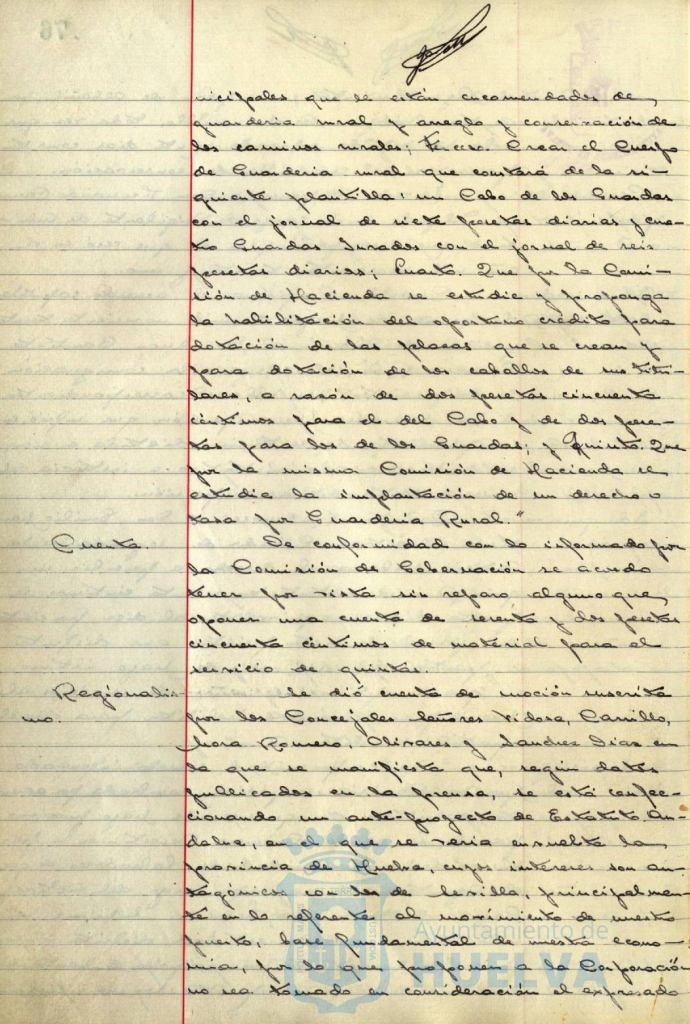 nicipales que se están encomendados de
guarderia rural y arreglo y conservación de
los caminos rurales; Tercero. Crear el Cuerpo
de Guarderia rural que constará de la si-
guiente plantilla: un Cabo de los Guardas
con el jornal de siete pesetas diarias y cua-
tro Guardas Jurados con el jornal de seis
pesetas diarias; Cuarto. Que por la Comi-
sión de Hacienda se estudie y proponga
la habilitación del oportuno crédito para
dotación de las plazas que se crean y
para dotación de los caballos de sus titu-
lares, a razón de dos pesetas cincuenta
céntimos para el del Cabo y de dos pese-
tas para los de los Guardas; y Quinto. Que
por la misma Comisión de Hacienda se
estudie la implantación de un derecho o
tasa por Guarderia Rural."
Cuenta. De conformidad con lo informado por
la Comisión de Gobernación se acordo
tener por vista sin reparo alguno que
oponer una cuenta de sesenta y dos pesetas
cincuenta céntimos de material para el
servicio de quintas.
Regionalis- Se dió cuenta de moción suscrita
mo. por los Concejales Señores Vidosa, Carrillo,
Mora Romero, Olivares y Sanchez Diaz en
la que se manifiesta que, según datos
publicados en la prensa, se está confec-
cionando un ante-proyecto de Estatuto An-
daluz, en el que se veria envuelta la
provincia de Huelva, cuyos intereses son an-
tagónicos con los de Sevilla, principalmen-
te en lo referente al movimiento de nuestro
puerto, base fundamental de nuestra econo-
mia, por lo que proponen a la Corporación
no sea tomado en consideración el expresado
Ayuntamiento de
HUELVA